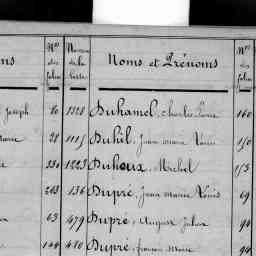 Nos des folios Numéros de la liste Noms et Prénoms Nos des folios
Joseph 20 1328 Duhamel, Charles Pierre 160
28 1115 Duhil, Jean Marie Louis 150
230 1223 Duhoux, Michel 153
203 136 Dupré, Jean Marie Louis 69
63 479 Dupré, Auguste Julien 94
144 480 Dupré, François Marie 94